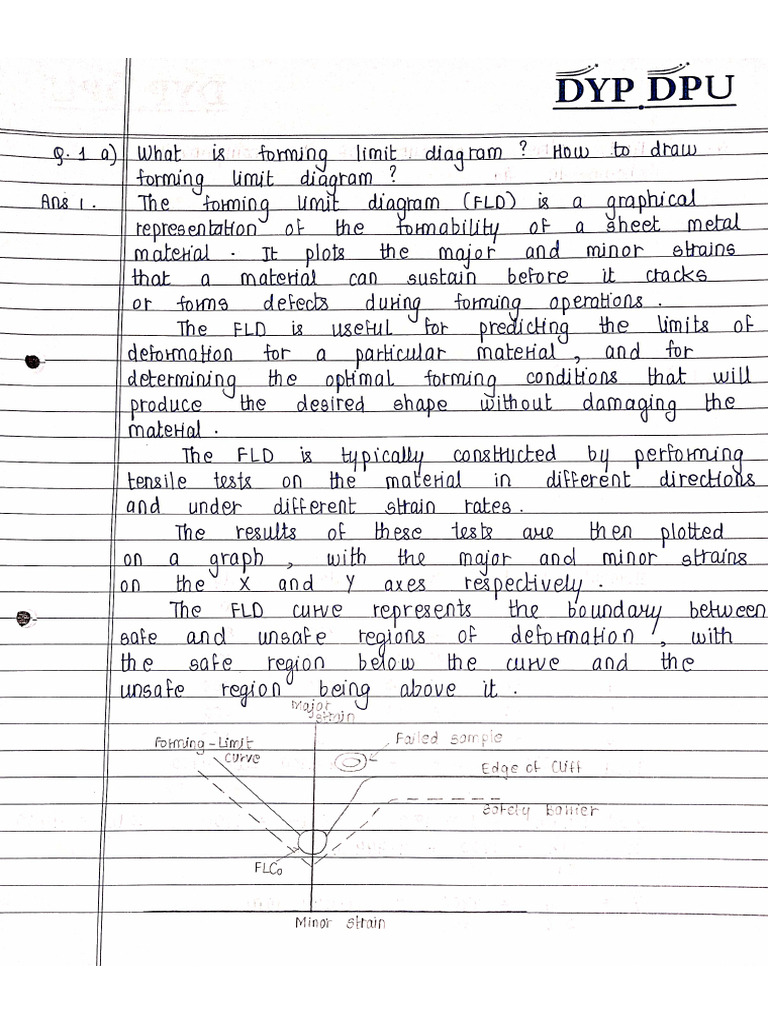 DYP DPU
Q. 1 a) What is forming limit diagram ? How to draw
forming limit diagram ?
Ans 1. The forming limit diagram (FLD) is a graphical
representation of the formability of a sheet metal
material. It plots the major and minor strains
that a material can sustain before it cracks
or forms defects during forming operations.
The FLD is useful for predicting the limits of
deformation for a particular material, and for
determining the optimal forming conditions that will
produce the desired shape without damaging the
material.
The FLD is typically constructed by performing
tensile tests on the material in different directions
and under different strain rates.
The results of these tests are then plotted
on a graph, with the major and minor strains
on the X and Y axes respectively.
The FLD curve represents the boundary between
safe and unsafe regions of deformation, with
the safe region below the curve and the
unsafe region being above it.
Major
strain
Forming-Limit
curve
Failed sample
Edge of Cliff
Safety Barrier
FLC₀
Minor strain